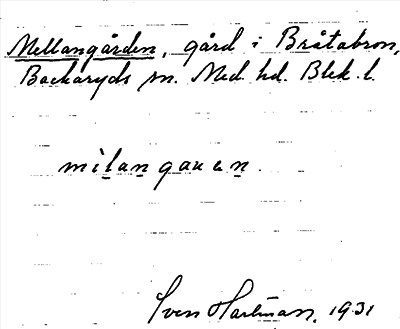 Mellangården, gård i Bråtabron,
Backaryds sn. Med. hd. Blek. l.
milangauen.
Sven Hartman, 1931